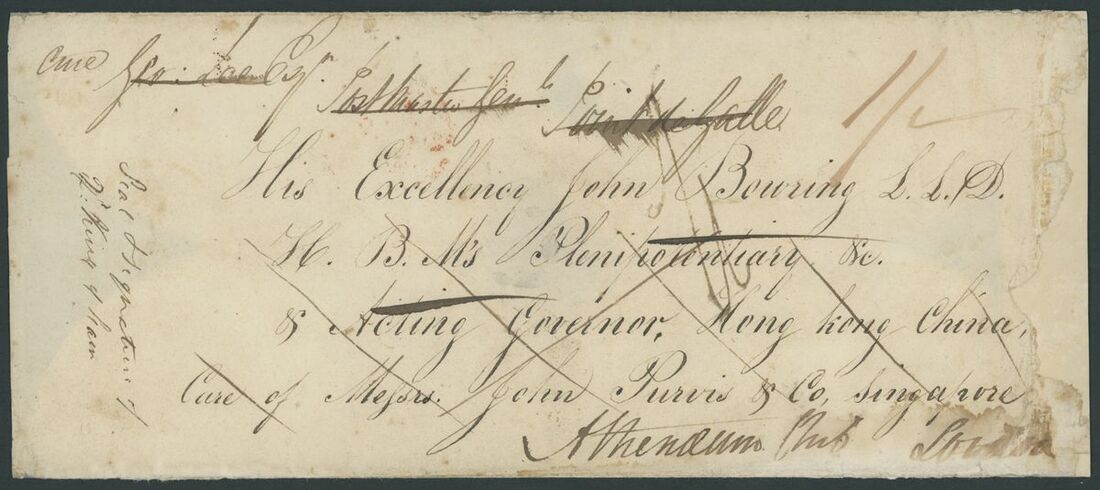 care Geo: Lee Esqr.
Postmaster Genl.
Point de Galle
1/2
His Excellency John Bowring L.L.D.
H. B. M's Plenipotentiary &c.
& Acting Governor, Hong kong China,
Care of Messrs. John Purvis & Co, Singapore
Athenaeum Club London
Seal & Signature of
King of Siam